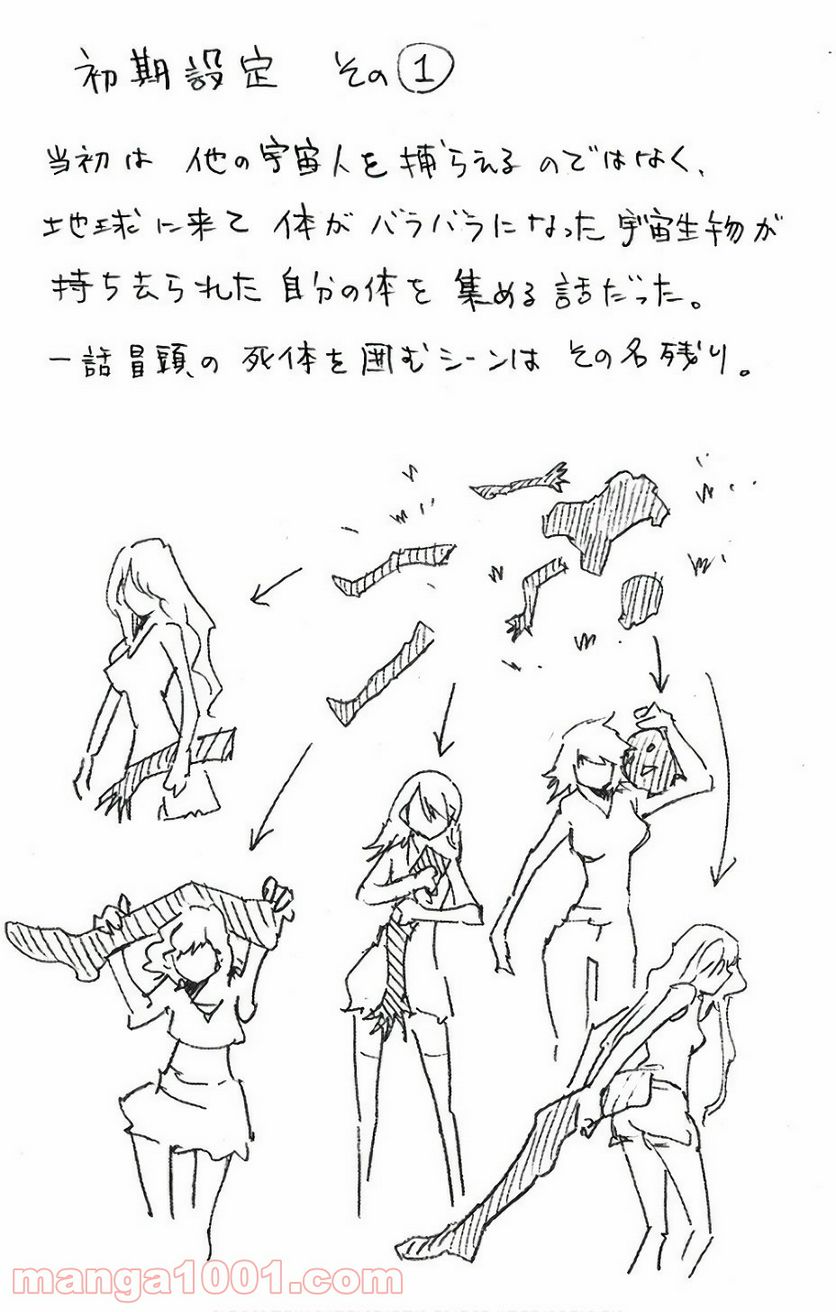 初期設定 その①
当初は 他の宇宙人を捕らえるのではなく、
地球に来て 体がバラバラになった宇宙生物が
持ち去られた自分の体を集める話だった。
一話冒頭の死体を囲むシーンは その名残り。
manga1001.com